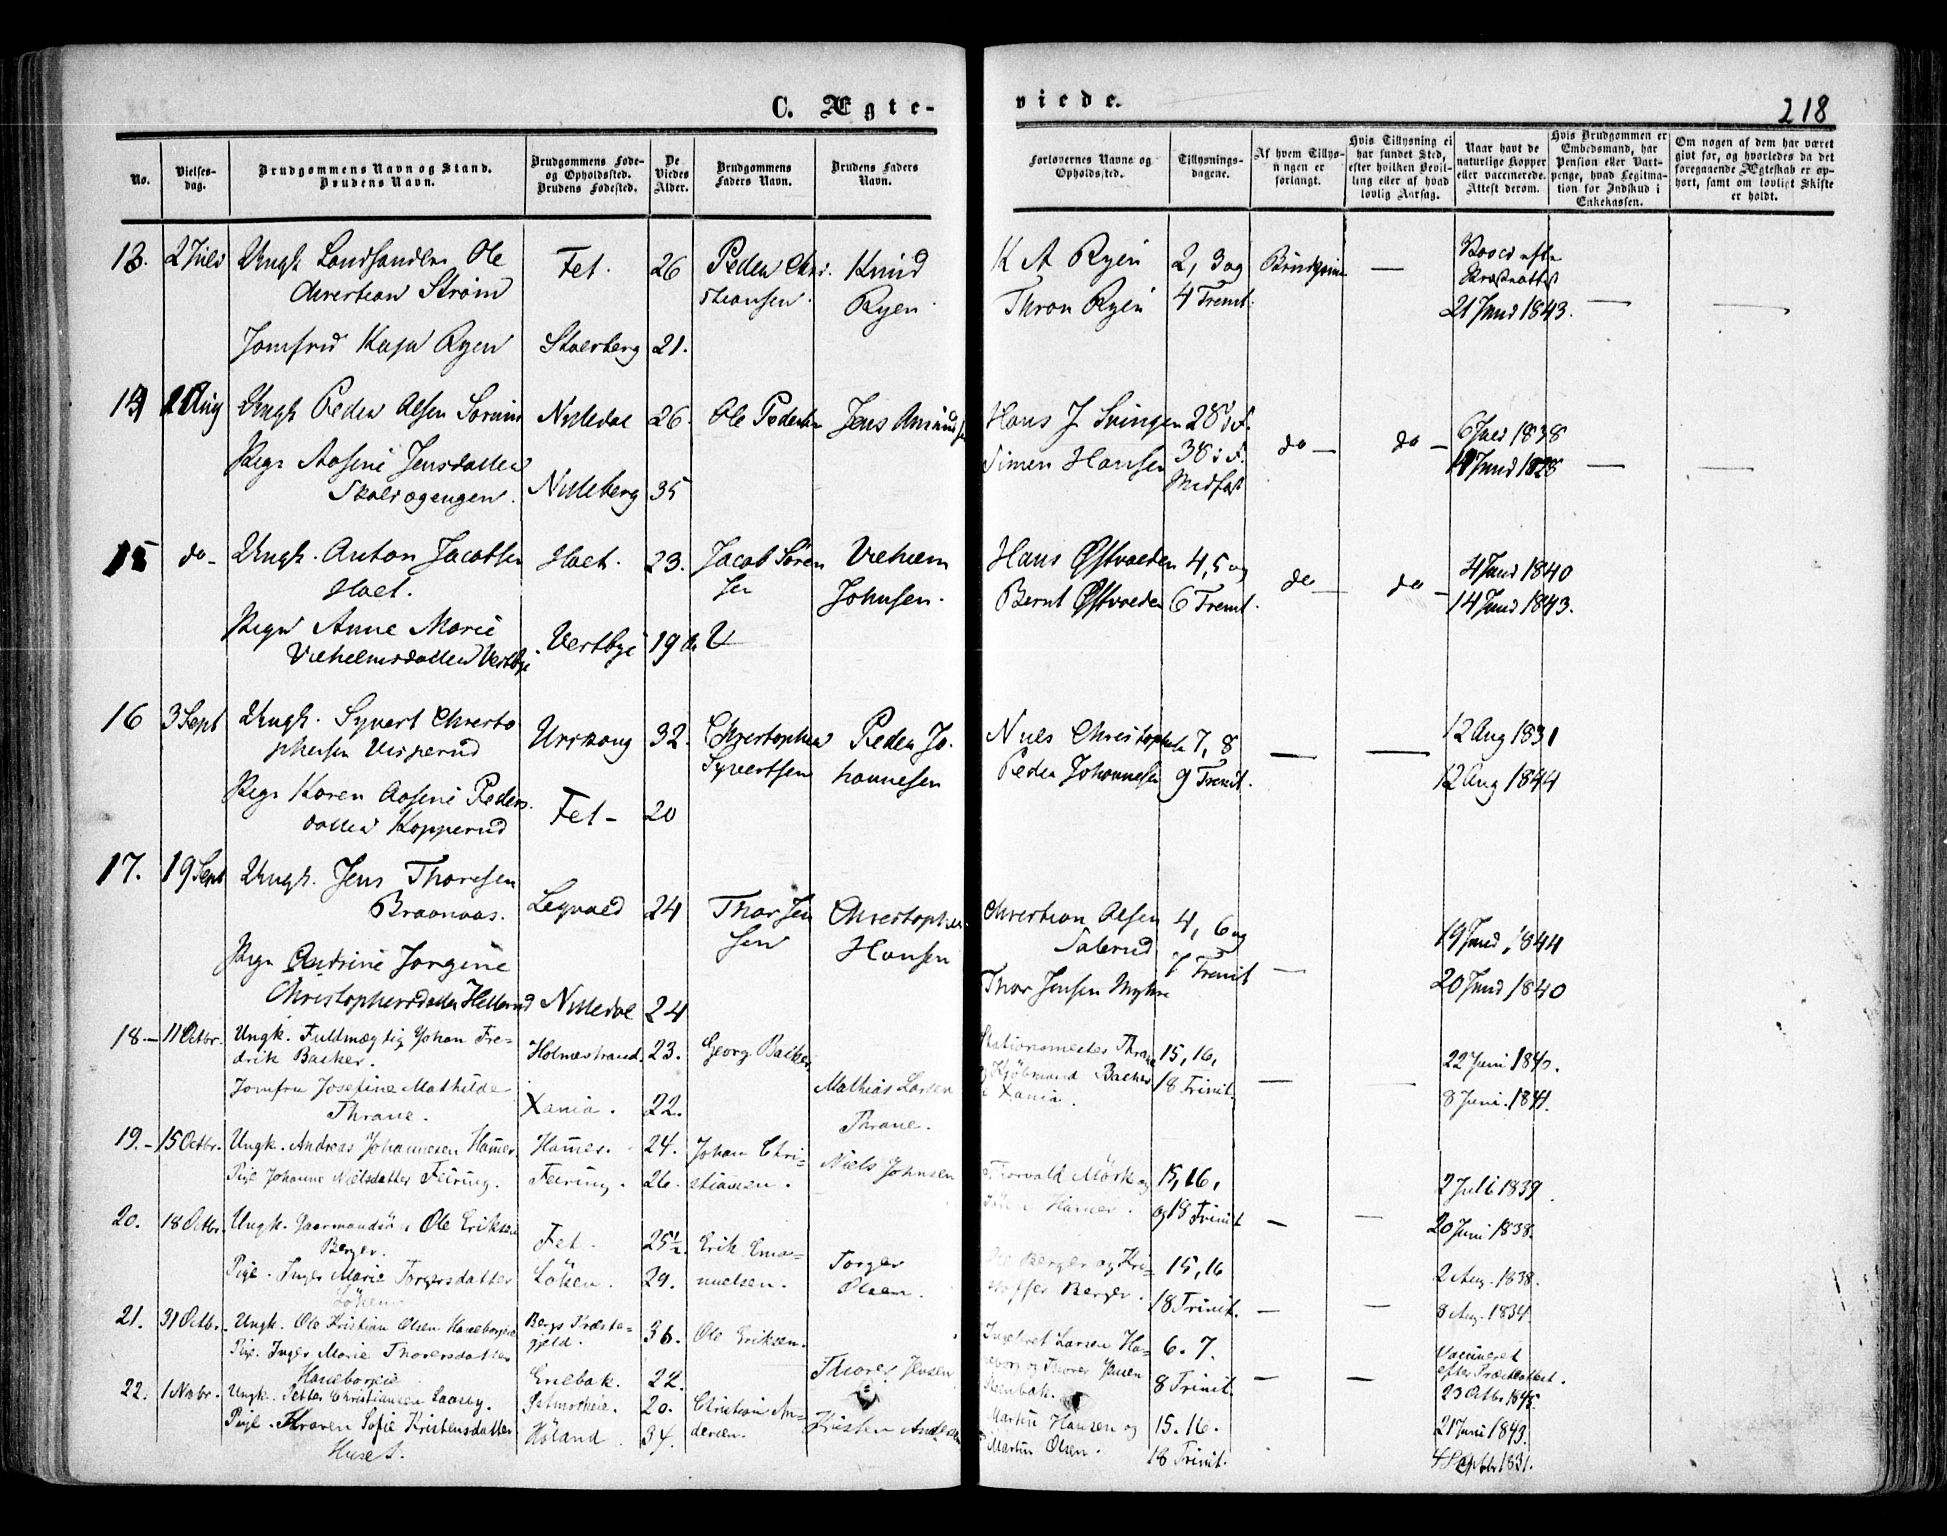 C. Ægte-
viede.
218
No.
Vielses-
dag.
Brudgommens Navn og Stand.
Brudens Navn.
Brudgommens Føde-
og Opholdssted.
Brudens Fødested.
De
Viedes
Alder.
Brudgommens
Faders Navn.
Brudens Faders
Navn.
Forlovernes Navne og
Opholdssted.
Tillysnings-
dagene.
Af hvem Tillys-
ningen er
forlangt.
Hvis Tillysning ei
har fundet Sted,
efter hvilken Bevil-
ling eller af hvad
lovlig Aarsag.
Naar havt de
naturlige Kopper
eller vaccinerede.
Attest derom.
Hvis Brudgommen er
Embedsmand, har
Pension eller Vart-
penge, hvad Legitima-
tion for Indskud i
Enkekassen.
Om nogen af dem har været
givt før, og hvorledes da det
foregaaende Ægteskab er op-
hørt, samt om lovligt Skifte
er holdt.
13. 2 Juli Ungk. Landhandler Ole Fet. 26 Peder Chri- Knud K A Ryen 2, 3 og —
Christian Strøm stiansen. Ryen. Thron Ryen 4 Trinit. 21 Juni 1843. — —
Jomfru Kaja Ryen 21.
14 Aug Ungk Peder Olsen Nittedal 26. Ole Pedersen Jens Hans J. Svingen do — do — 6 Juli 1838
Pige Aasine Jensdatter Simen Hansen — —
35
15 do — Ungk. Anton Jacobsen Hoel. 23. Jacob Søren Vilhelm Hans Østvolden 4, 5 og do — do — 4 Juni 1840
Hoel. sen Johnsen. Bernt Østvolden 6 Trinit. 14 Juni 1843.
Pige Anne Marie Vestbye 19
Vilhelmsdatter Vestbye
16 3 Sept Ungk. Syvert Christo Urskoug 32. Christopher Peder Jo- Niels 7, 8 — — 12 Aug 1831
phersen Syvertsen hannesen Peder Johannesen 9 Trinit. 12 Aug 1844
Pige Karen Aasine Peders- Fet — 20
datter Kopperud
17. 19 Sept Ungk. Jens Thoresen 24 Thor Jen Christopher Christian Olsen 4, 6 og 19 Juni 1844
Braanaas. sen Hansen 7 Trinit —
Pige Jørgine Thor Jensen Myhre 20 Juni 1840
Christophersdatter Nittedal 24
18.— 11 Octbr. Ungk. Fuldmægtig Johan Fre- Holmestrand. 23. Georg Backer Stationsmester Thrane 15, 16, — — 22 Juni 1840.
drik Backer. Kjøbmand Backer 18 Trinit.
Jomfru Josefine Mathilde Xania. 22. Mathias Larsen i Xania. 8 Juni. 1841.
Thrane. Thrane.
19.— 15 Octbr. Ungk. Andreas Johannesen Hamer. Hamer. 24. Johan Chri- Niels Johnsen Thorvald Mørk og 15, 16, 2 Juli 1839.
Pige Johanne Nielsdatter Feiring. Feiring. 26. stiansen. Hamer. og 18 Trinit — — 20 Juni 1838.
20. 18 Octbr. Ungk. Gaarmandsø. Ole Eriksen Fet. 25½. Erik Ema- Torger Ole Berger og Kri- 15, 16 2 Aug. 1838.
Berger. nuelsen. Olsen. stoffer Berger. 18 Trinit. — — 8 Aug. 1834.
Pige. Inger Marie Torgersdatter Løken. 29.
Løken
21. 31 Octbr. Ungk. Ole Kristian Olsen Haneborgeie Bergs Præste- 36. Ole Eriksen. Thorer Jensen Ingebret Larsen Ha- 6. 7. Vaccineret
Pige. Inger Marie Thorersdatter gjeld. neborg og Thorer Jensen 8 Trinit. — — efter Præsteattest.
Haneborgeie Enebak. 22. 23 Octbr 1845.
22. 1 Novbr. Ungk. Petter Christiansen 20. Christian An- Kristen Andersen Martin Hansen og 15. 16. 21 Juni 1849.
Pige. Sofie Kristensdatter Høland. 34. dersen. Martin Olsen. 18 Trinit. 4 Septbr 1831.
Huset.